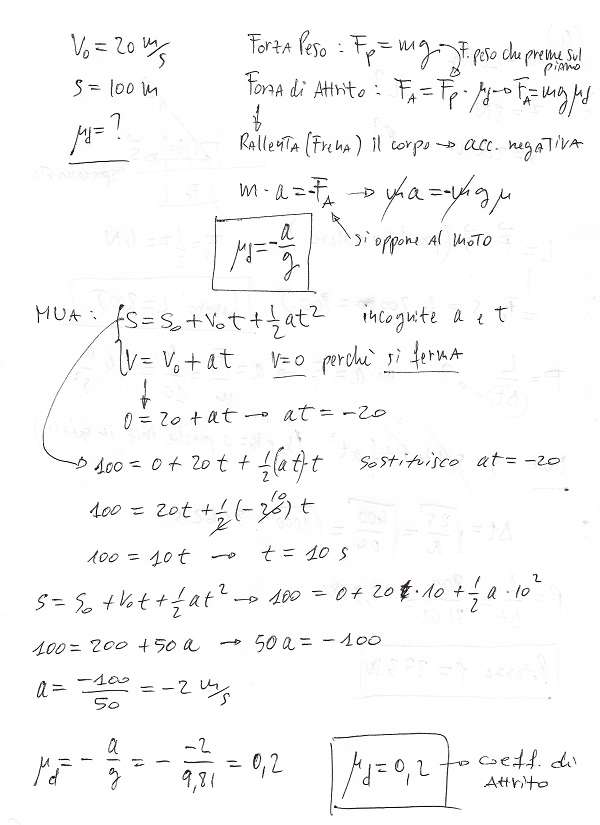 V₀ = 20 m/s
Forza Peso : F_p = mg
F. peso che preme sul piano
S = 100 m
Forza di Attrito : F_A = F_p · μ_d → F_A = mg μ_d
μ_d = ?
Rallenta (Frena) il corpo → acc. negativa
m · a = -F_A → m a = -m g μ
si oppone al moto
μ_d = - a/g
MUA : { S = S₀ + V₀ t + 1/2 at² incognite a e t
V = V₀ + at V = 0 perchè si ferma
0 = 20 + at → at = -20
100 = 0 + 20t + 1/2 (at)·t sostituisco at = -20
100 = 20t + 1/2 (-20) t
10
100 = 10t → t = 10 s
S = S₀ + V₀t + 1/2 at² → 100 = 0 + 20 · 10 + 1/2 a · 10²
100 = 200 + 50a → 50a = -100
a = -100/50 = -2 m/s
μ_d = - a/g = - -2/9,81 = 0,2
μ_d = 0,2 → coeff. di Attrito